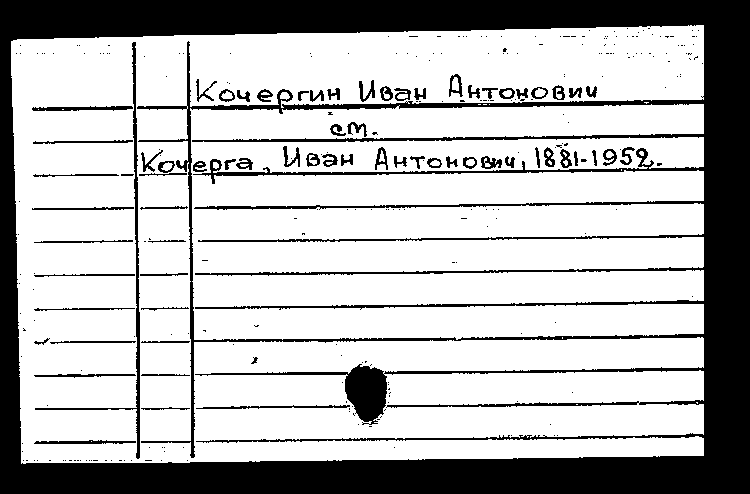 Кочергин Иван Антонович
см.
Кочерга, Иван Антонович, 1881-1952.